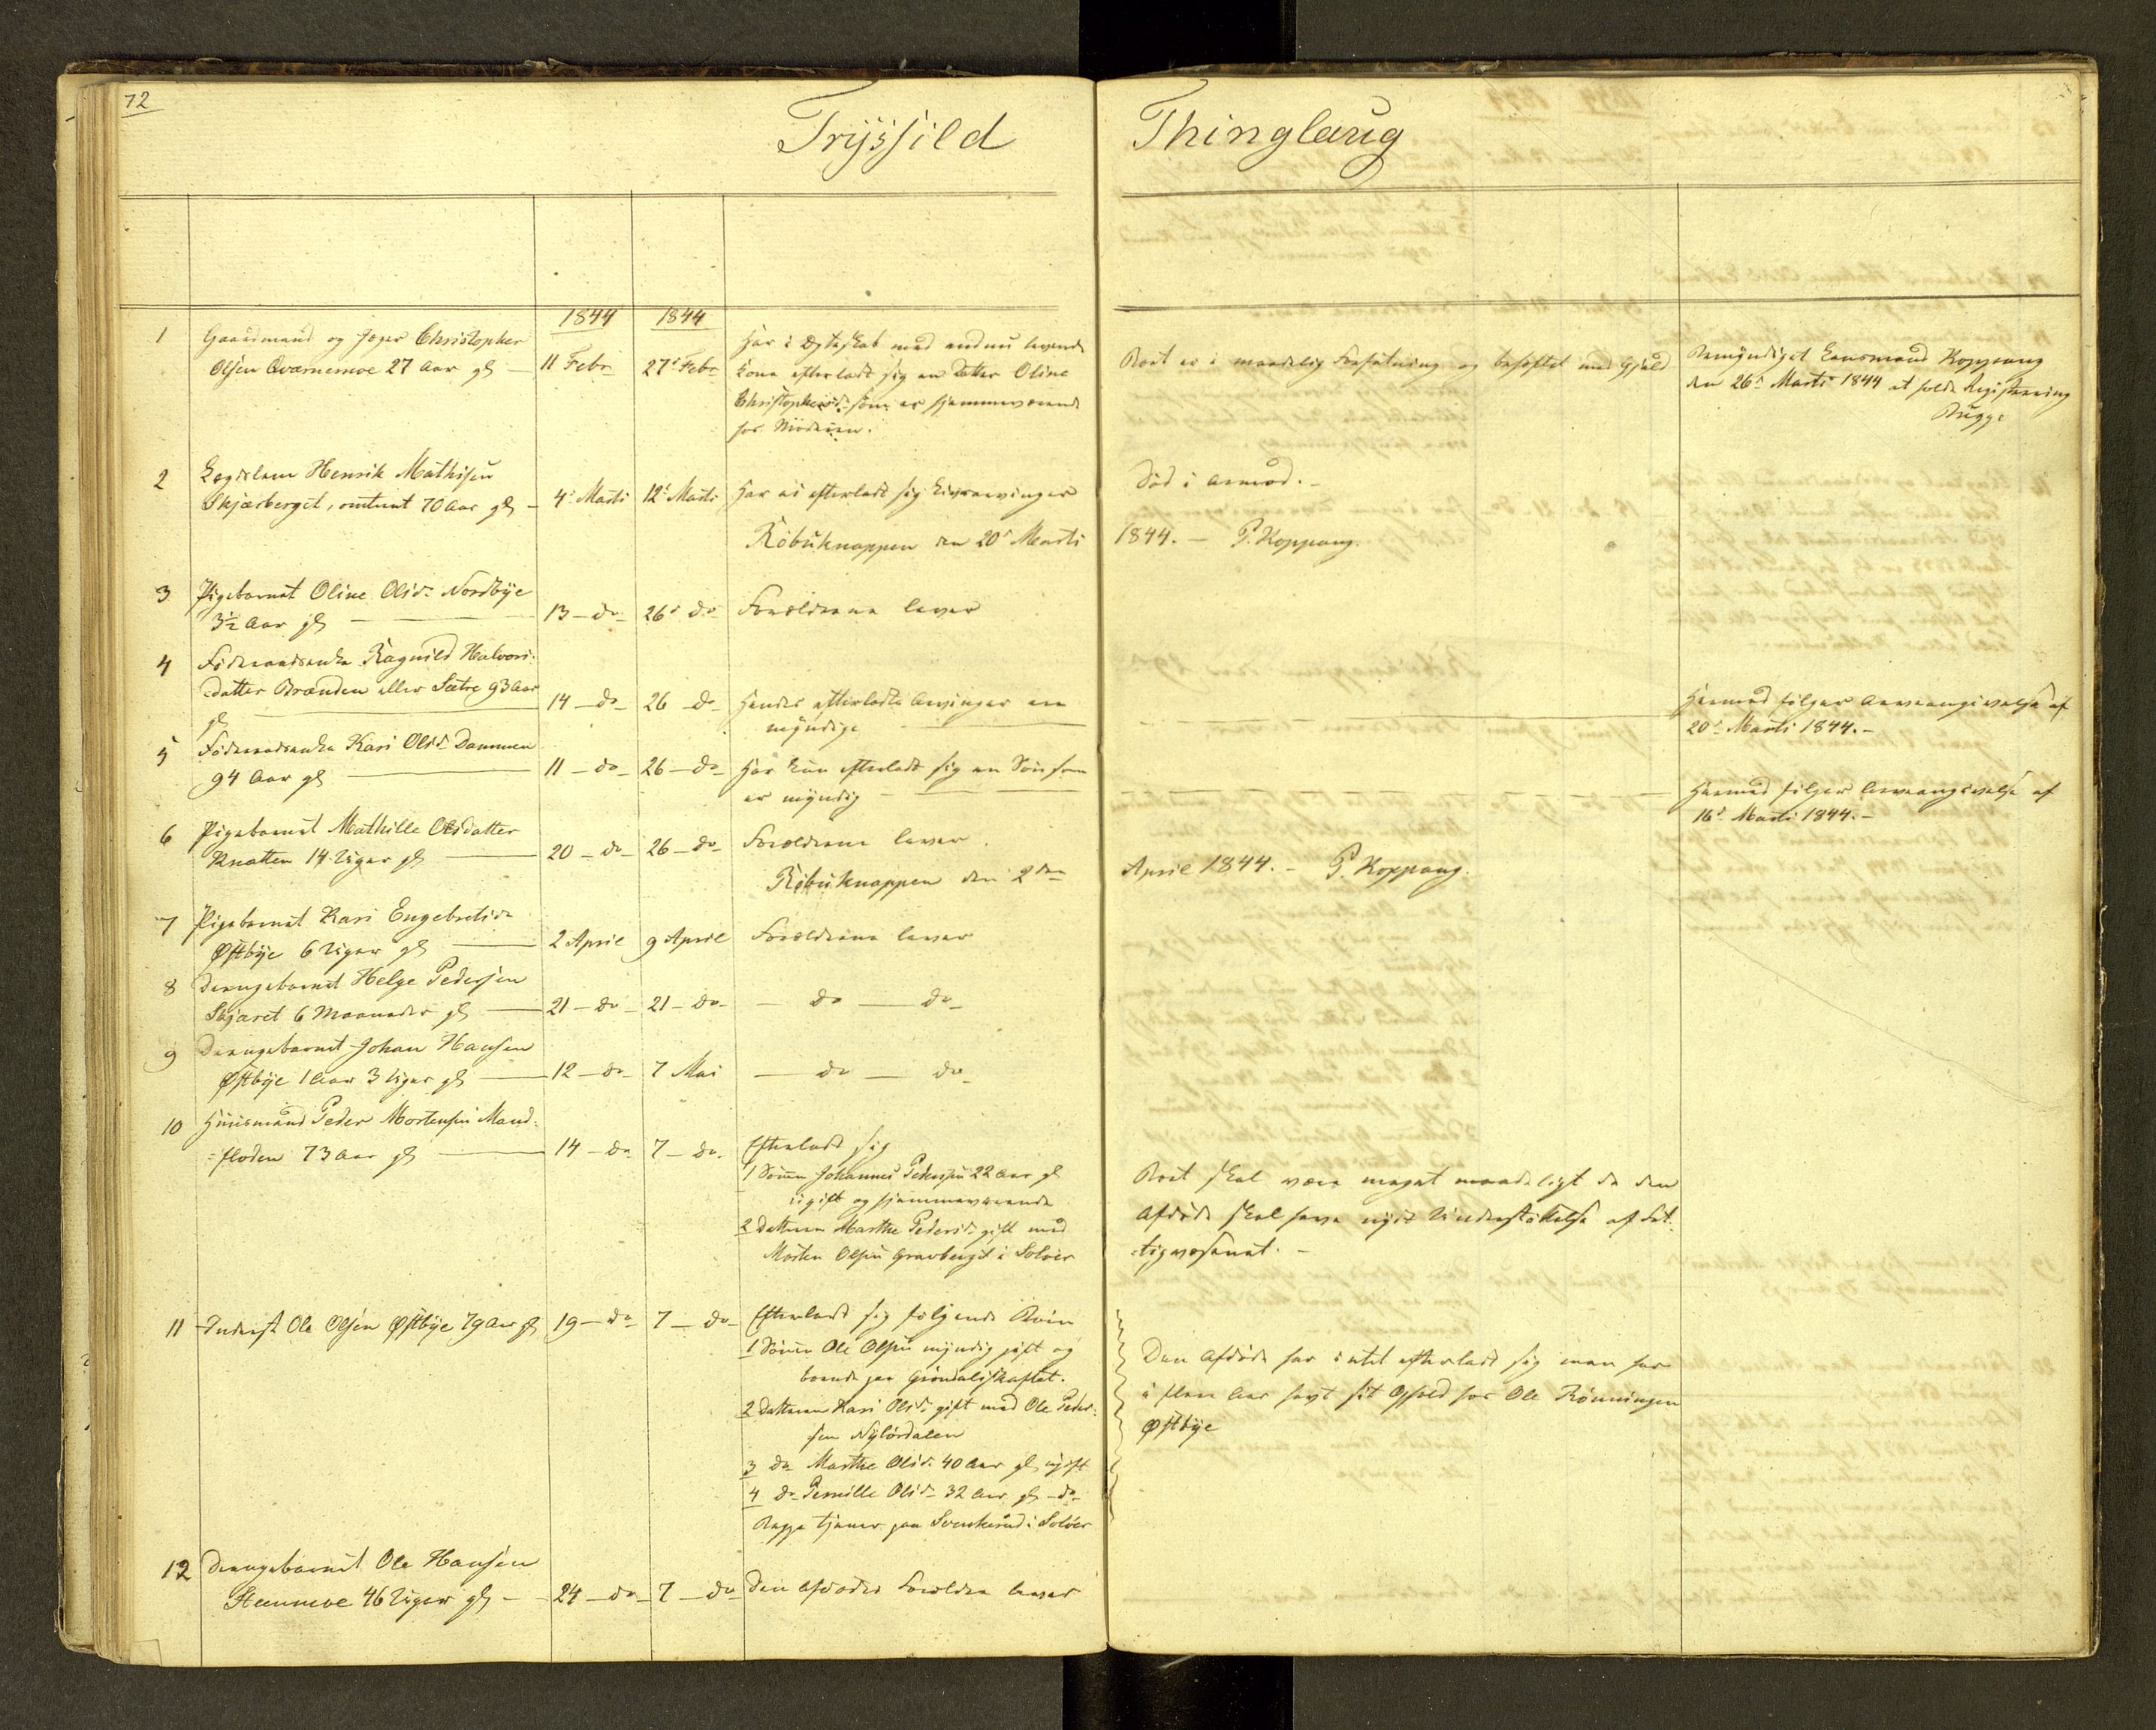 72
Tryssild Thinglaug
1844 1844
1 Gaardmand og Jæger Christopher
Olsen Qværnemoe 27 Aar gl — 11 Febr 27de Febr
Har i Ægteskab med endnu levende
Kone efterladt sig en Datter Oline
Christophersd. som er hjemmeværende
hos Moderen.
Boet er i maadelig Forfatning og behæftet med Gjæld
Bemyndiget Lensmand Koppang
den 26de Marti 1844 at holde Registrering
Bugge
2 Lægdslem Henrik Mathisen
Skjærberget, omtrent 70 Aar gl — 4de Marti 12te Marti Har ei efterladt sig Livsarvinger
Død i Armod. —
Röbuknappen den 20de Marti 1844. — P. Koppang.
3 Pigebarnet Oline Olsd. Nordbye
3½ Aar gl — 13 — do 26de do Forældrene lever
4 Föderaadsenke Ragnild Halvors-
datter Brænden eller Sætre 93 Aar
gl — 14 — do 26 do Hendes efterladte Arvinger ere
myndige
Hermed følger Arveangivelse af
20de Marti 1844. —
5 Föderaadsenke Kari Olsd. Dammen
94 Aar gl — 11 — do 26 — do Har kun efterladt sig en Søn som
er myndig —
Hermed følger Arveangivelse af
16de Marti 1844. —
6 Pigebarnet Mathille Olsdatter
Knatten 14 Uger gl — 20 — do 26 — do Forældrene lever.
Röbuknappen den 2den April 1844. — P. Koppang.
7 Pigebarnet Kari Engebretsd.
Østbye 6 Uger gl — 2 April 9 April Forældrene lever
8 Drengebarnet Helge Pedersen
6 Maaneder gl — 21 — do 21 — do — do — do
9 Drengebarnet Johan Hansen
Østbye 1 Aar 3 Uger gl — 12 — do 7 Mai — do — do
10 Huusmand Peder Mortensen Mand-
floden 73 Aar gl — 14 — do 7 — do Efterladt sig
1 Sønn Johannes Pedersen 22 Aar gl
ugift og hjemmeværende
2 Datteren Marthe Pedersd. gift med
Morten Olsen Gravberget i Soløer
Boet skal være meget maadeligt da den
Afdøde skal have nydt Understøttelse af Fat-
tigvæsenet. —
11 Inderst Ole Olsen Østbye 79 Aar gl 19 — do 7 — do Efterladt sig følgende Børn
1 Sønn Ole Olsen myndig gift og
boende paa Grøndalsskaftet.
2 Datteren Kari Olsd. gift med Ole Peder-
sen Nylørdalen
3 do Marthe Olsd. 40 Aar gl ugift
4 do Pernille Olsd. 32 Aar gl — do
Begge tjener paa Svenkerud i Soløer
Den Afdøde har intet efterladt sig men har
i flere Aar havt sit Ophold hos Ole Rønningen
Østbye
12 Drengebarnet Ole Hansen
Steenmoe 46 Uger gl — 24 — do 7 — do Den Afdødes Forældre lever